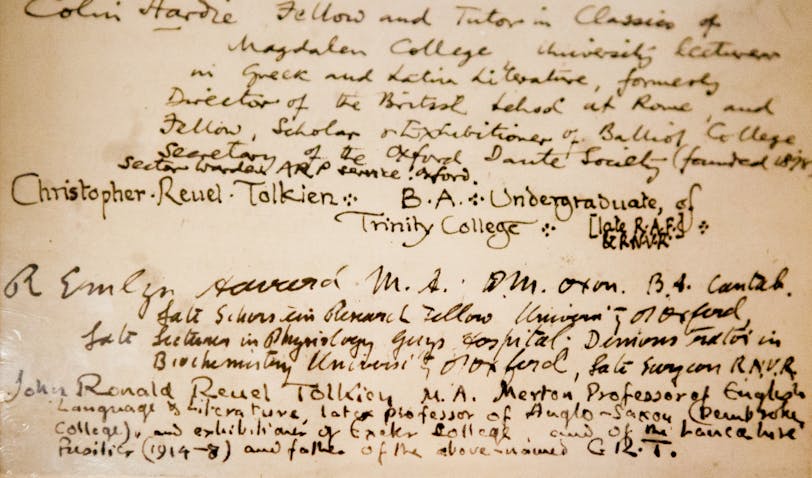 Colin Hardie Fellow and Tutor in Classics of
Magdalen College University Lecturer
in Greek and Latin Literature, formerly
Director of the British School at Rome, and
Fellow, Scholar & Exhibitioner of Balliol College
Secretary of the Oxford Dante Society (founded
Sector warden ARP service Oxford.
Christopher Reuel Tolkien B.A. Undergraduate, of
Trinity College [late R.A.F.]
& R.N.V.R.
R Emlyn Havard M.A. D.M. Oxon. B.A. Cantab.
Late Schorstein Research Fellow University of Oxford,
Late Lecturer in Physiology Guys Hospital. Demonstrator in
Biochemistry University of Oxford, Late Surgeon R.N.V.R.
John Ronald Reuel Tolkien, M.A. Merton Professor of English
Language & Literature, late Professor of Anglo-Saxon (Pembroke
College), and exhibitioner of Exeter College, and of the Lancashire
Fusilier (1914-8) and father of the above-named C.R.T.